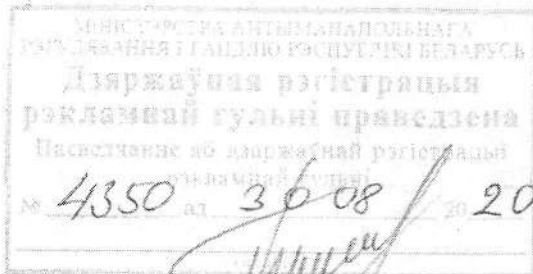 МІНІСТЭРСТВА АНТЫМАНАПОЛЬНАГА
РЭГУЛЯВАННЯ І ГАНДЛЮ РЭСПУБЛІКІ БЕЛАРУСЬ
Дзяржаўная рэгістрацыя
рэкламнай гульні праведзена
Пасведчанне аб дзяржаўнай рэгістрацыі
рэкламнай гульні
№ 4350 ад 30 08 2020